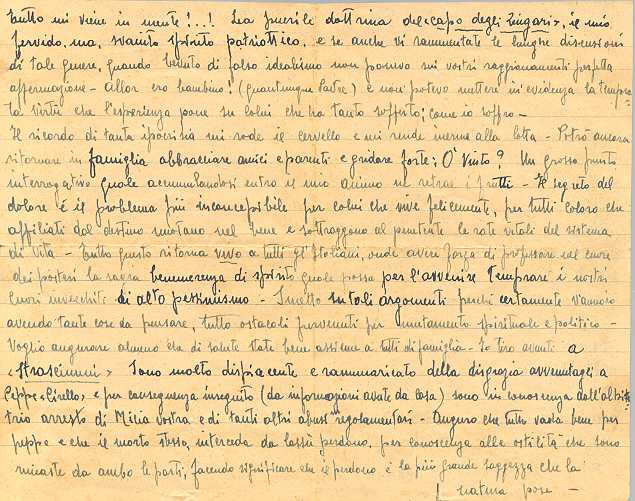 tutto mi viene in mente!..! La puerile dottrina del «capo degli Zingari», il mio
fervido, ma, svanito spirito patriottico, e se anche vi rammentate le lunghe discussioni
di tale genere, quando bevuto di falso idealismo non ponevo sui vostri raggionamenti perfetta
affermazione - Allor ero bambino! (quantunque Padre) e non potevo mettere in evidenza la tempra=
ta virtù che l'esperienza pone su colui che ha tanto sofferto; come io soffro -
Il ricordo di tanta ipocrisia mi rode il cervello e mi rende inerme alla lotta - Potrò ancora
ritornare in famiglia abbracciare amici e parenti e gridare forte: O' Vinto? Un grosso punto
interrogativo quale accumulandosi entro il mio animo ne i frutti - Il segreto del
dolore è il problema più inconcepibile per colui che vive felicemente, per tutti coloro che
affiliati dal destino nuotano nel bene e sottraggono al penitente le rate vitali del sistema
di vita - Tutto questo ritorna vivo a tutti gl'Italiani, onde avere forza di professare nel cuore
dei posteri la sacra benemerenza di spirito quale possa per l'avvenire Temprare i nostri
cuori invecchiti di alto pessimismo - Smetto su tali argomenti perchè certamente v'annoio
avendo tante cose da pensare, tutto ostacoli pervenuti per mutamento spirituale e politico -
Voglio augurare almeno che di salute state bene assieme a tutti di famiglia - Io tiro avanti a
«Strascinuni» Sono molto dispiacente e rammaricato della disgrazia avvenutagli a
Peppe «Cirello» e per conseguenza inseguito (da informazioni avute da casa) sono in conoscenza dell'albitr
trio arresto di Micia vostra e di tanti altri abusi regolamentari - Auguro che tutto vada bene per
peppe e che il morto stesso, interceda da lassù perdono, per conoscenza alle ostilità che sono
rimaste da ambo le parti, facendo significare che il perdono è la più grande saggezza che la
natura pose -